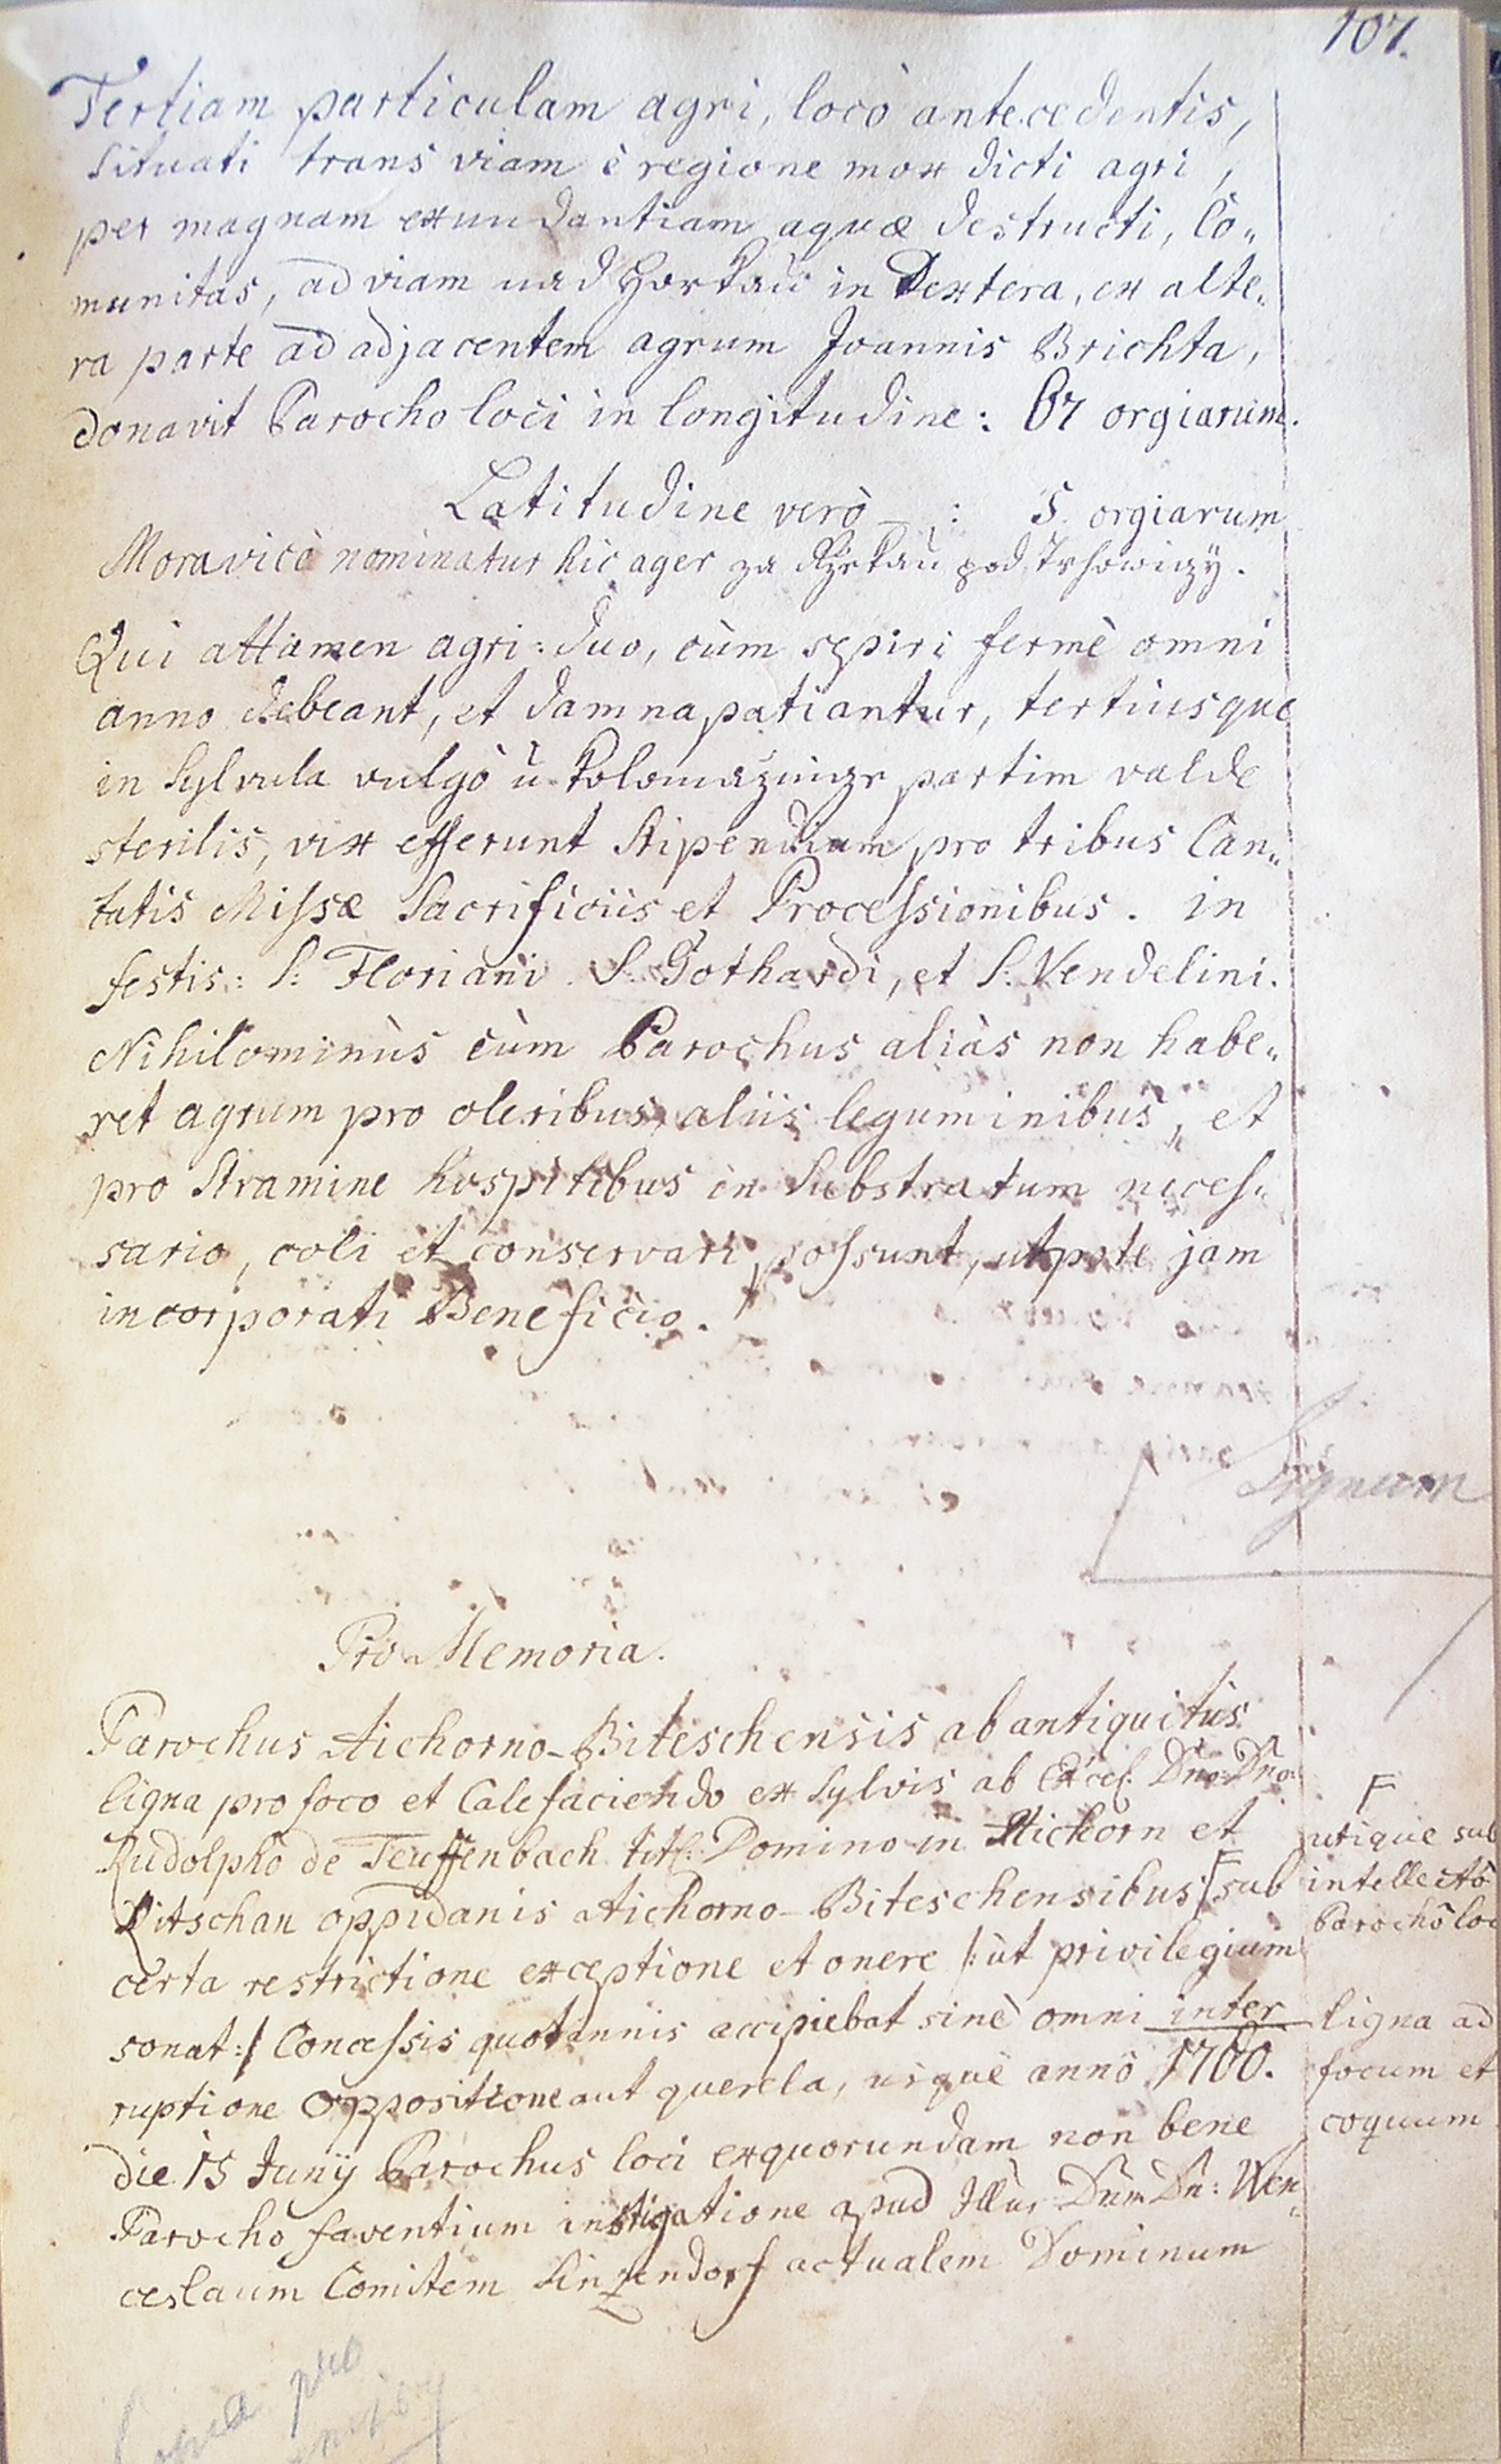 107.
Tertiam particulam agri, locò antecedentis,
situati trans viam è regione mox dicti agri,
per magnam exundantiam aquæ destructi, Co„
munitas, ad viam nad Horkau in Dextera, ex alte„
ra parte ad adjacentem agrum Joannis Brichta,
donavit Parocho loci in longitudine: 67 orgiarum.
Latitudine verò _ : 5. orgiarum
Moravicè nominatur hic ager za Ržekau pod
Qui attamen agri: duo, cùm sepiri fermè omni
anno debeant, et damna patiantur, tertiusque
in Sylvula vulgò u Kolomaznicze partim valde
sterilis, vix efferunt Stipendium pro tribus Can„
tatis Missæ Sacrificiis et Processionibus. in
festis: S: Floriani S: Gothardi, et S: Vendelini.
Nihilominùs cùm Parochus aliàs non habe„
ret agrum pro oleribus, aliis leguminibus, et
pro Stramine hospitibus in Substratum neces„
sario, coli et conservari possunt, utpote jam
incorporati Beneficio.
Lignum
Pro Memoria.
Parochus Aichorno-Biteschensis ab antiquitùs
ligna pro foco et Calefaciendo ex Sylvis ab Excel: Dno: Dno:
Rudolpho de Teuffenbach titl: Domino in Aichorn et
Ditschan oppidanis Aichorno-Biteschensibus F sub
certa restrictione exceptione et onere /: ùt privilegium
sonat :/ Concessis quotannis accipiebat sinè omni inter
ruptione oppositione aut querela, usque annô 1760.
die 15 Junÿ Parochus loci ex quorundam non bene
Parochô faventium instigatione apud Illus: Dnm Dn: Wen„
ceslaum Comitem Sinzendorf actualem Dominum
F
utique sub
intellectô
Parochô loc
ligna ad
focum et
coquum
pro